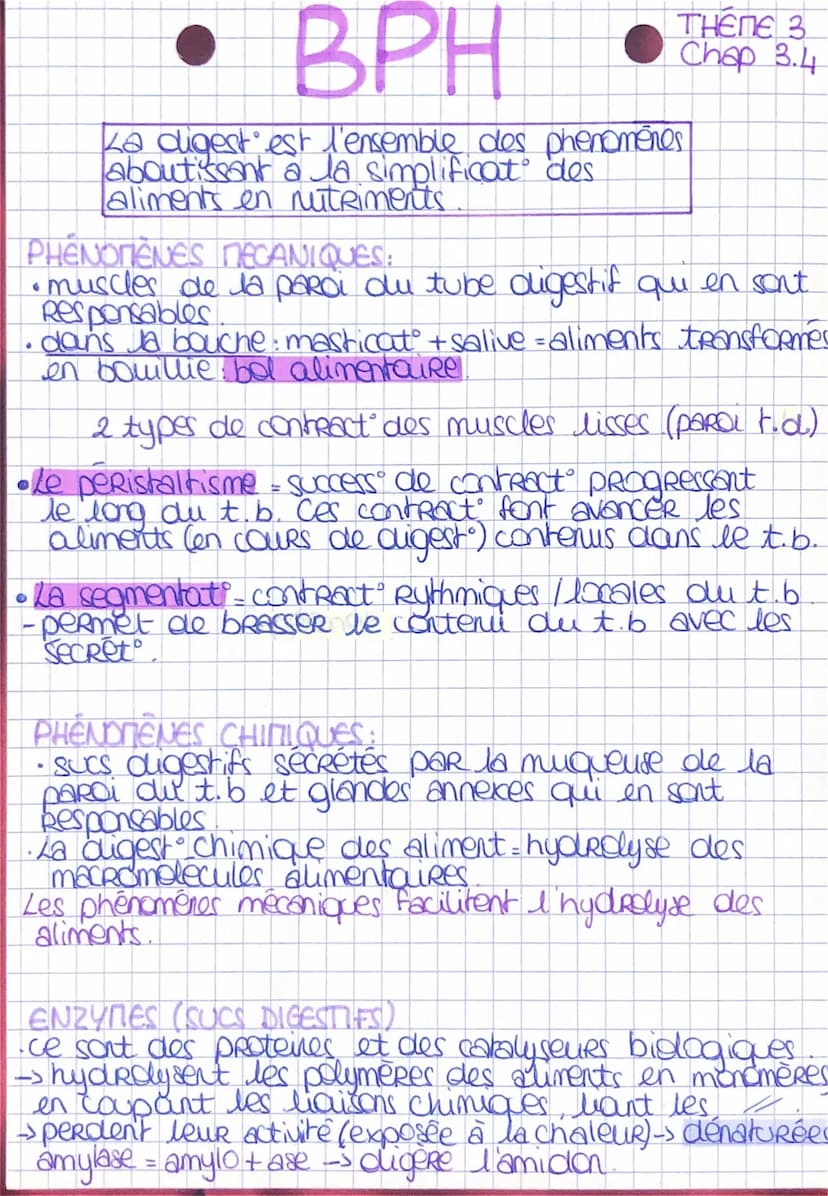 BPH
THÉME 3
Chap 3.4
La digest° est l'ensemble des phenomènes
aboutissant à la simplificat° des
aliments en nutriments.
PHÉNOMÈNES MECANIQUES:
• muscles de la paroi du tube digestif qui en sont
Responsables.
• dans la bouche : masticat° + salive = aliments transformés
en bouillie : bol alimentaire
2 types de contract° des muscles lisses (paroi t.d)
• Le péristaltisme = success° de contract° progressant
le long du t.b. Ces contract° font avancer les
aliments (en cours de digest°) contenus dans le t.b.
• La segmentat° = contract° Rythmiques / locales du t.b
- permet de brasser le contenu du t.b avec les
sécrét°.
PHÉNOMÈNES CHIMIQUES :
• sucs digestifs sécrétés par la muqueuse de la
paroi du t.b et glandes annexes qui en sont
Responsables.
• La digest° chimique des aliment = hydrolyse des
macromolécules alimentaires.
Les phénomènes mécaniques facilitent l'hydrolyse des
aliments.
ENZYMES (SUCS DIGESTIFS)
• ce sont des proteines et des catalyseurs biologiques.
-> hydrolysent les polymères des aliments en monomères
en coupant les liaisons chimiques, liant les //.
-> perdent leur activité (exposée à la chaleur) -> dénaturées
amylase = amylo + ase -> digère l'amidon.